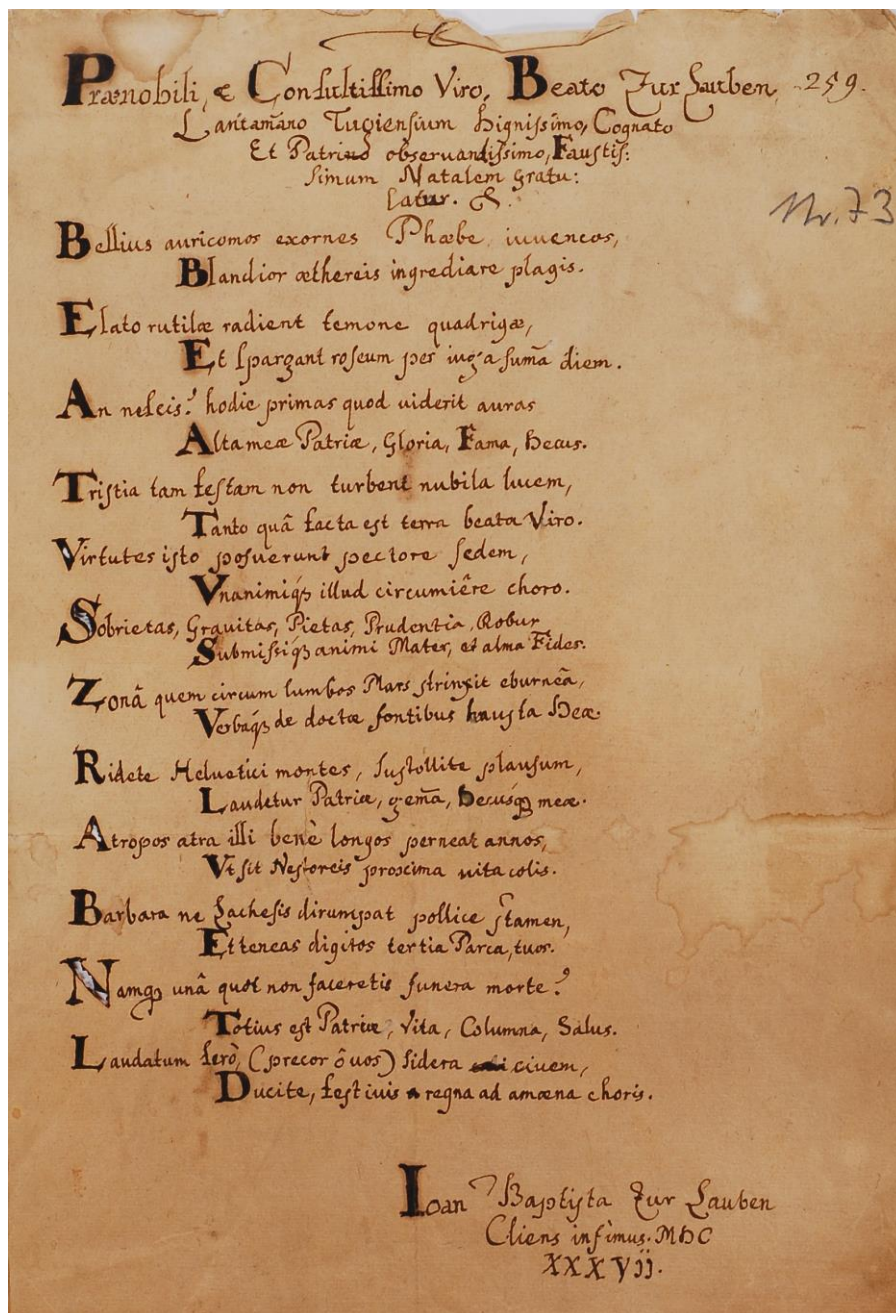 Prænobili, & Consultissimo Viro, Beato Zur Lauben, 259.
Lantam̃ano Tugiensium Dignissimo, Cognato
Et Patrino observandissimo, Faustis:
simum Natalem gratu:
latur.
Nr. 73
Bellius auricomos exornes Phæbe iuvencos,
Blandior æthereis ingrediare plagis.
Elato rutilæ radient temone quadrigæ,
Et spargant roseum per iuga sum̃a diem.
An nescis? hodie primas quod viderit auras
Alta meæ Patriæ, Gloria, Fama, Decus.
Tristia tam festam non turbent nubila lucem,
Tanto quâ facta est terra beata Viro.
Virtutes isto posuerunt pectore sedem,
Vnanimiqꝫ illud circumiêre choro.
Sobrietas, Gravitas, Pietas, Prudentia, Robur
Submissiqꝫ animi Mater, et alma Fides.
Zonâ quem circum lumbos Mars strinxit eburneâ,
Verbaqꝫ de doctæ fontibus hausta Deæ.
Ridete Helvetici montes, sustollite plausum,
Laudetur Patriæ, gem̃a, Decusqꝫ meæ.
Atropos atra illi benè longos perneat annos,
Vt sit Nestoreis proxima vita colis.
Barbara ne Lachesis dirumpat pollice stamen,
Et teneas digitos tertia Parca, tuos.
Namqꝫ unâ quot non faceretis funera morte?
Totius est Patriæ, Vita, Columna, Salus.
Laudatum serò, (precor ô vos) sidera civem,
Ducite, festivis regna ad amæna choris.
Ioan Baptista Zur Lauben
Cliens infimus. MDC
XXXVII.